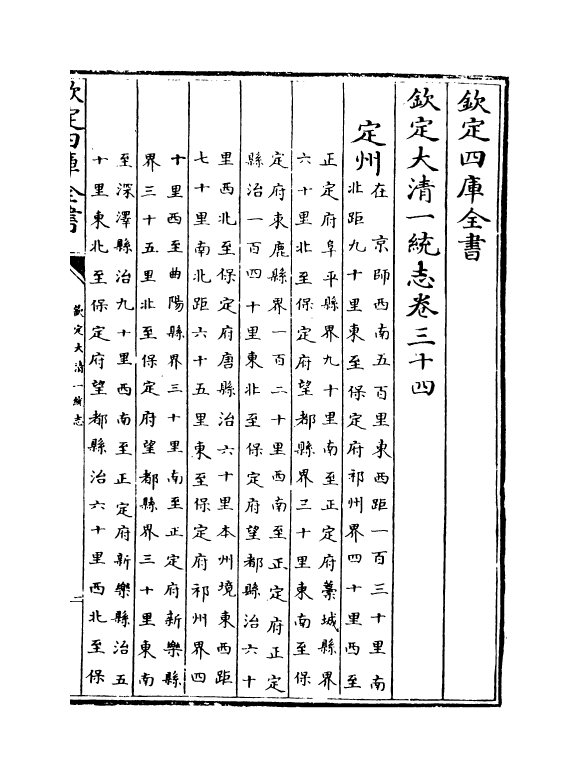 欽定四庫全書
欽定大清一統志卷三十四
定州在 京師西南五百里東西距一百三十里南
北距九十里東至保定府祁州界四十里西至
正定府阜平縣界九十里南至正定府藁城縣界
六十里北至保定府望都縣界三十里東南至保
定府束鹿縣界一百二十里西南至正定府正定
縣治一百四十里東北至保定府望都縣治六十
里西北至保定府唐縣治六十里本州境東西距
七十里南北距六十五里東至保定府祁州界四
十里西至曲陽縣界三十里南至正定府新樂縣
界三十五里北至保定府望都縣界三十里東南
至深澤縣治九十里西南至正定府新樂縣治五
十里東北至保定府望都縣治六十里西北至保
欽定四庫全書
欽定大清一統志